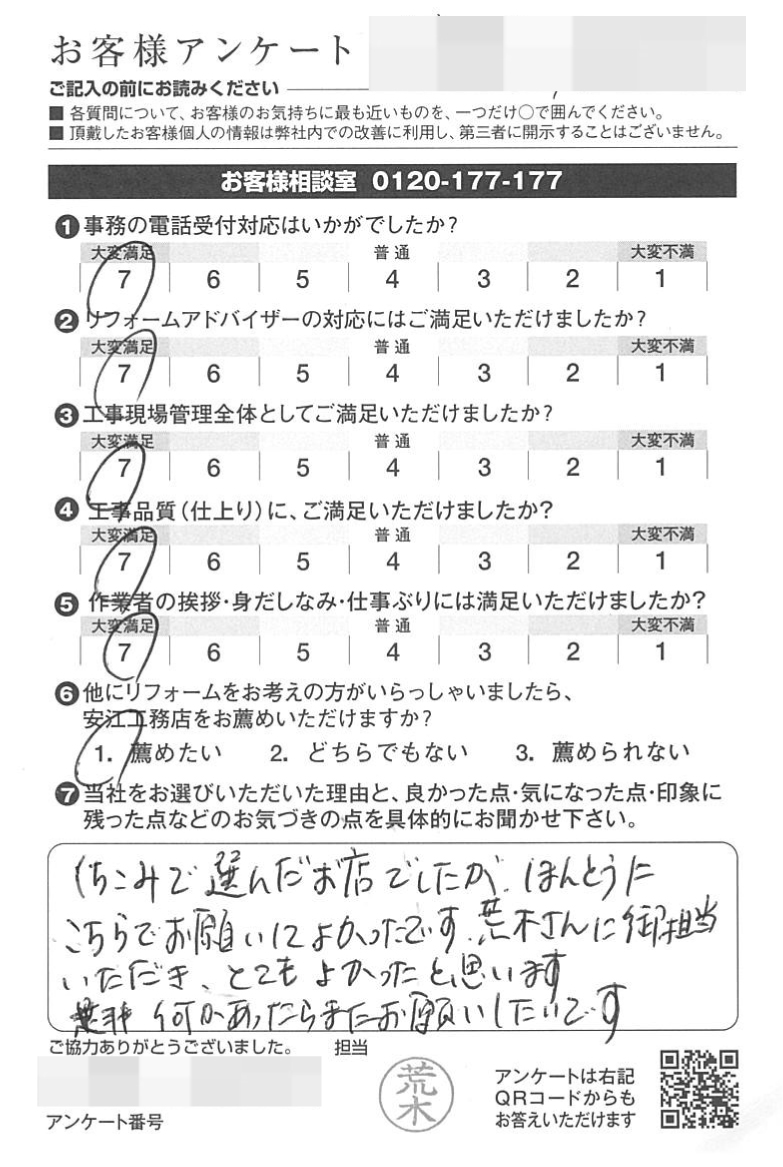 お客様アンケート
ご記入の前にお読みください
■ 各質問について、お客様のお気持ちに最も近いものを、一つだけ○で囲んでください。
■ 頂戴したお客様個人の情報は弊社内での改善に利用し、第三者に開示することはございません。
お客様相談室 0120-177-177
❶事務の電話受付対応はいかがでしたか?
大変満足 普通 大変不満
7 6 5 4 3 2 1
❷リフォームアドバイザーの対応にはご満足いただけましたか?
大変満足 普通 大変不満
7 6 5 4 3 2 1
❸工事現場管理全体としてご満足いただけましたか?
大変満足 普通 大変不満
7 6 5 4 3 2 1
❹工事品質(仕上り)に、ご満足いただけましたか?
大変満足 普通 大変不満
7 6 5 4 3 2 1
❺作業者の挨拶・身だしなみ・仕事ぶりには満足いただけましたか?
大変満足 普通 大変不満
7 6 5 4 3 2 1
❻他にリフォームをお考えの方がいらっしゃいましたら、
安江工務店をお薦めいただけますか?
1. 薦めたい 2. どちらでもない 3. 薦められない
❼当社をお選びいただいた理由と、良かった点・気になった点・印象に
残った点などのお気づきの点を具体的にお聞かせ下さい。
くちこみで選んだお店でしたが、ほんとうに
こちらでお願いしてよかったです。荒木さんに御担当
いただき、とてもよかったと思います
是非何かあったらまたお願いしたいです
ご協力ありがとうございました。 担当
荒木
アンケートは右記
QRコードからも
お答えいただけます
アンケート番号